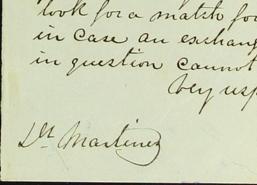 look for a match for
in case an exchang
in question cannot
Very resp
Dr Martinez